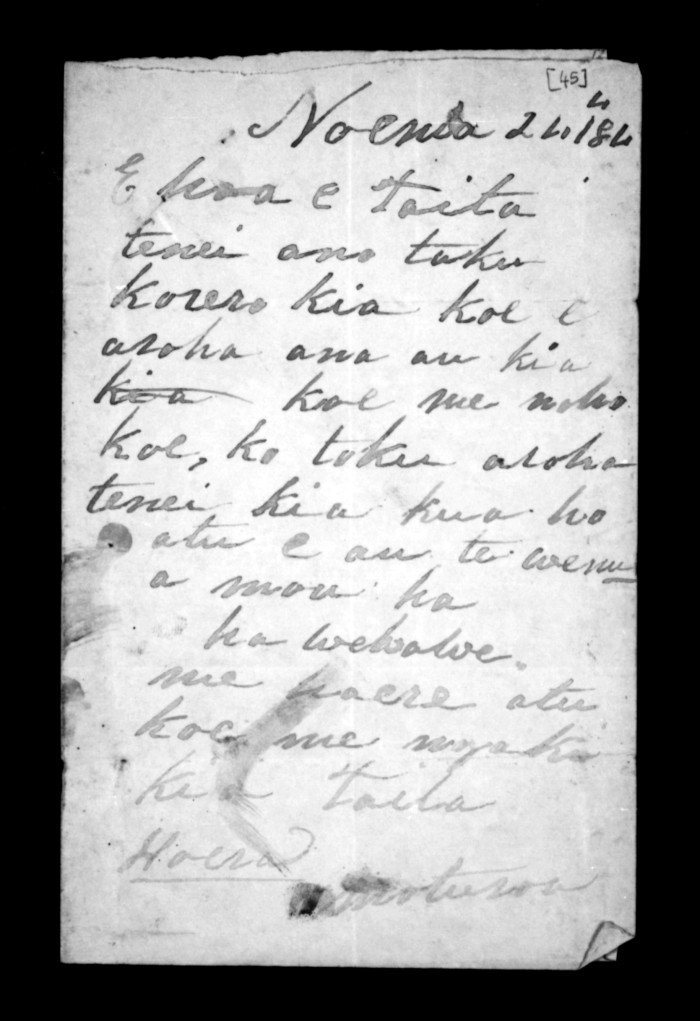 [45]
Noema 24 184
4
E hoa e Taita
tenei ano taku
korero kia koe e
aroha ana au kia
kia koe me noho
koe, ko toku aroha
tenei kia kua ho
atu e au te wenu
a mou ha
ha wehawe.
me haere atu
koe me ngaki
kia Taita
Hoera